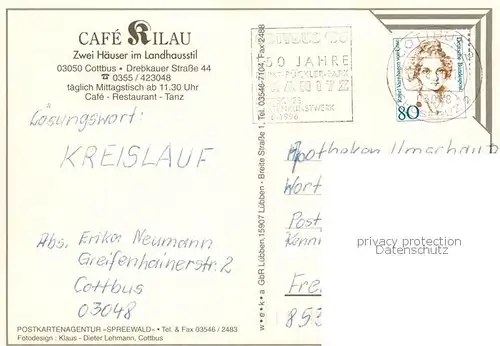 CAFÉ KILAU
Zwei Häuser im Landhausstil
03050 Cottbus • Drebkauer Straße 44
☎ 0355 / 423048
täglich Mittagstisch ab 11.30 Uhr
Café - Restaurant - Tanz
Lösungswort:
KREISLAUF
Abs. Erika Neumann
Greifenhainerstr. 2
Cottbus
03048
POSTKARTENAGENTUR »SPREEWALD« • Tel. & Fax 03546 / 2483
Fotodesign : Klaus - Dieter Lehmann, Cottbus
w • e • k • a GbR Lübben, 15907 Lübben - Breite Straße 1, Tel. 03546-7104, Fax-2488
50 JAHRE
Deutsche Bundespost
80
Apotheken Umschau
Wort
Post
Kenn
Fre
853
privacy protection
Datenschutz